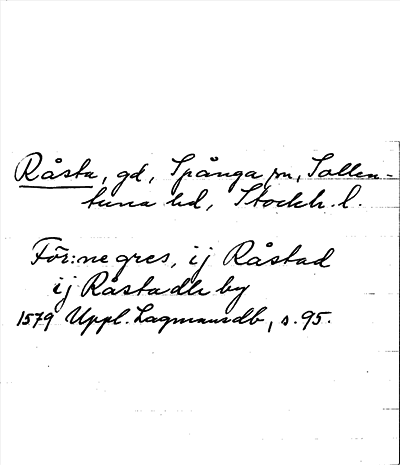 Råsta, gd, Spånga sn, Sollen-
tuna hd, Stockh. l.
För:ne gres, ij Råstad
ij Råstadh by
1579 Uppl. Lagmansdb, s. 95.